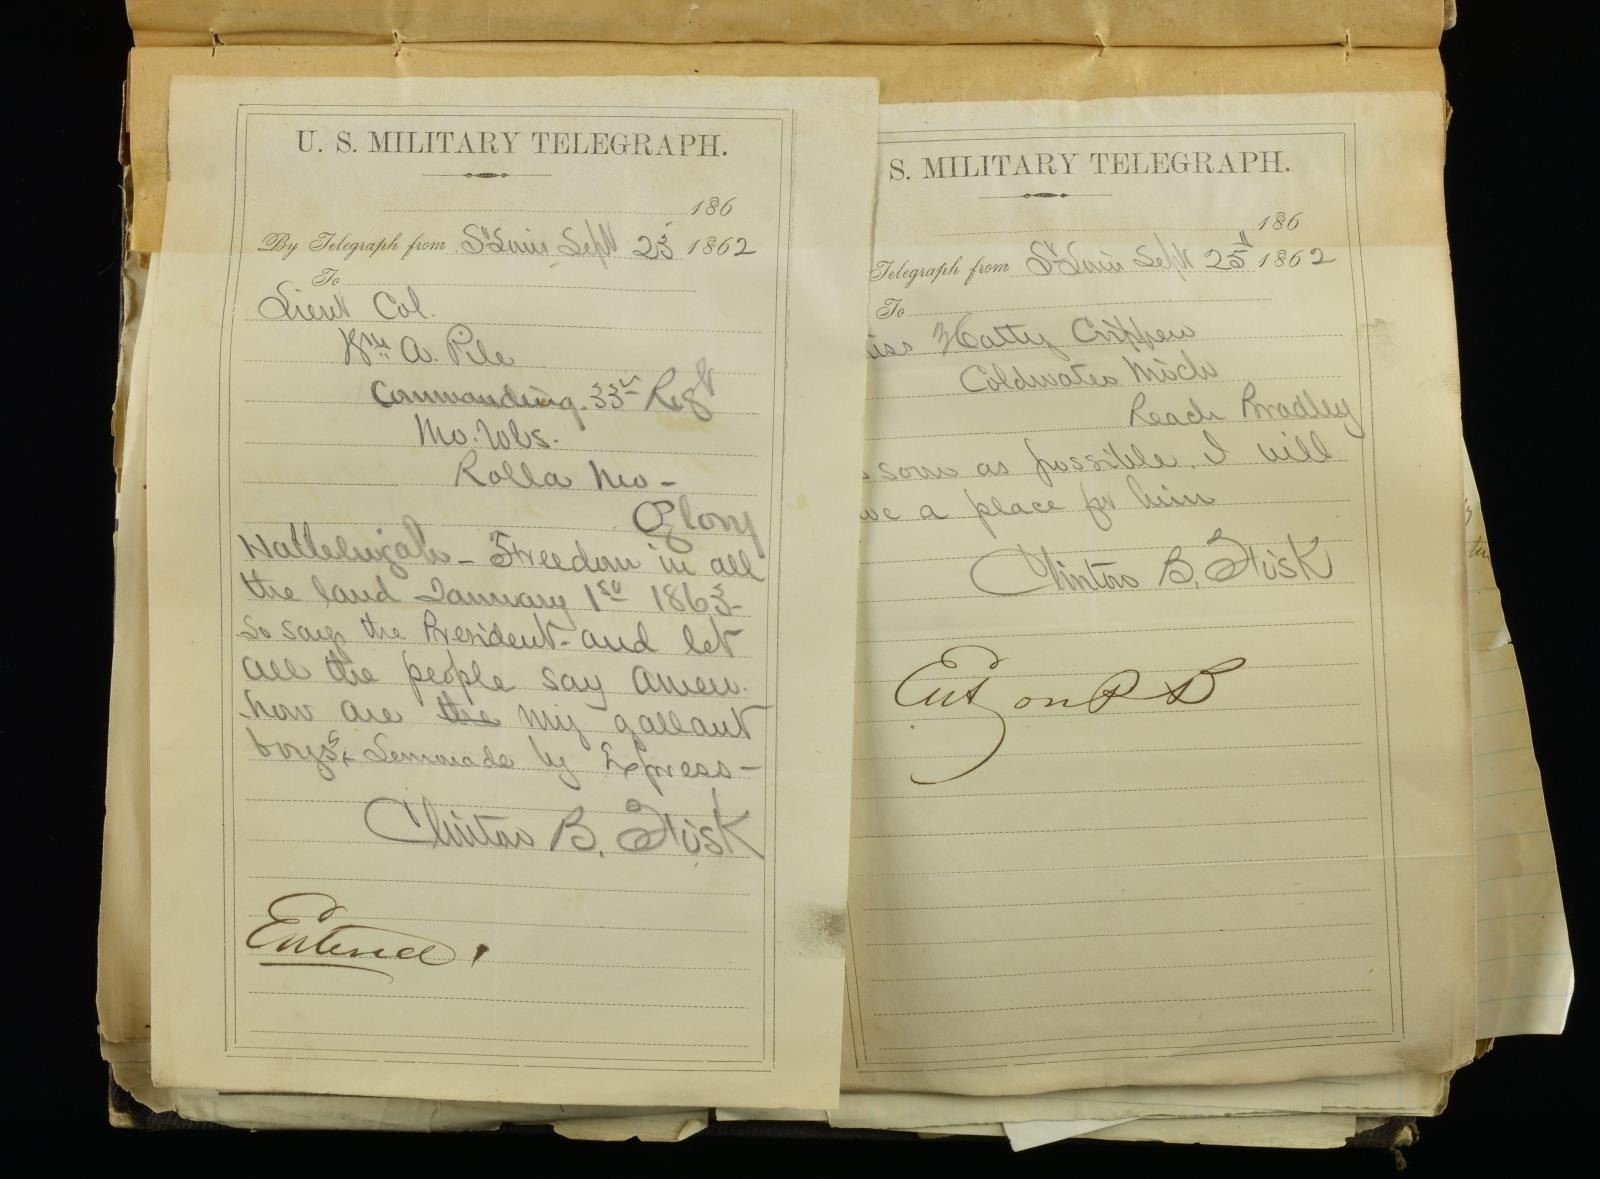 U. S. MILITARY TELEGRAPH.
186
By Telegraph from St Louis Sept 23 1862
To
Lieut Col.
Wm A. Pile
Commanding 33rd Regt
Mo. Vols.
Rolla Mo -
Glory
Hallelujah - Freedom in all
the land January 1st 1863 -
So says the President - and let
all the people say Amen.
how are the my gallant
boys. Lemonade by Express -
Clinton B. Fisk
Entered.
S. MILITARY TELEGRAPH.
186
Telegraph from St Louis Sept 25" 1862
To
iss Hatty Crippen
Coldwater Mich
Reach Bradley
s soon as possible. I will
ve a place for him
Clinton B. Fisk
Ent on P B